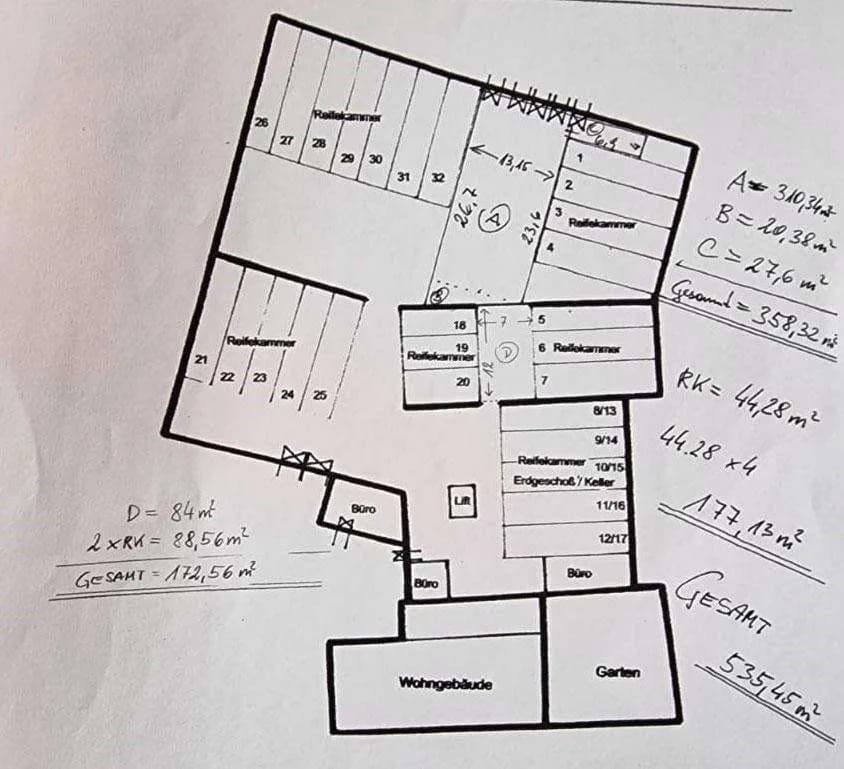 26
27
28
29
30
31
32
Reifekammer
6,9
1
2
3
4
Reifekammer
13,15
26,7
A
23,6
B
A = 310,34 m²
B = 20,38 m²
C = 27,6 m²
Gesamt = 358,32 m²
21
22
23
24
25
Reifekammer
18
19
20
Reifekammer
7
12
D
5
6
7
Reifekammer
RK = 44,28 m²
44.28 x 4
177,13 m²
8/13
9/14
Reifekammer 10/15
Erdgeschoß / Keller
11/16
12/17
Lift
Büro
Büro
Büro
D = 84 m²
2 x RK = 88,56 m²
GESAMT = 172,56 m²
GESAMT
535,45 m²
Wohngebäude
Garten